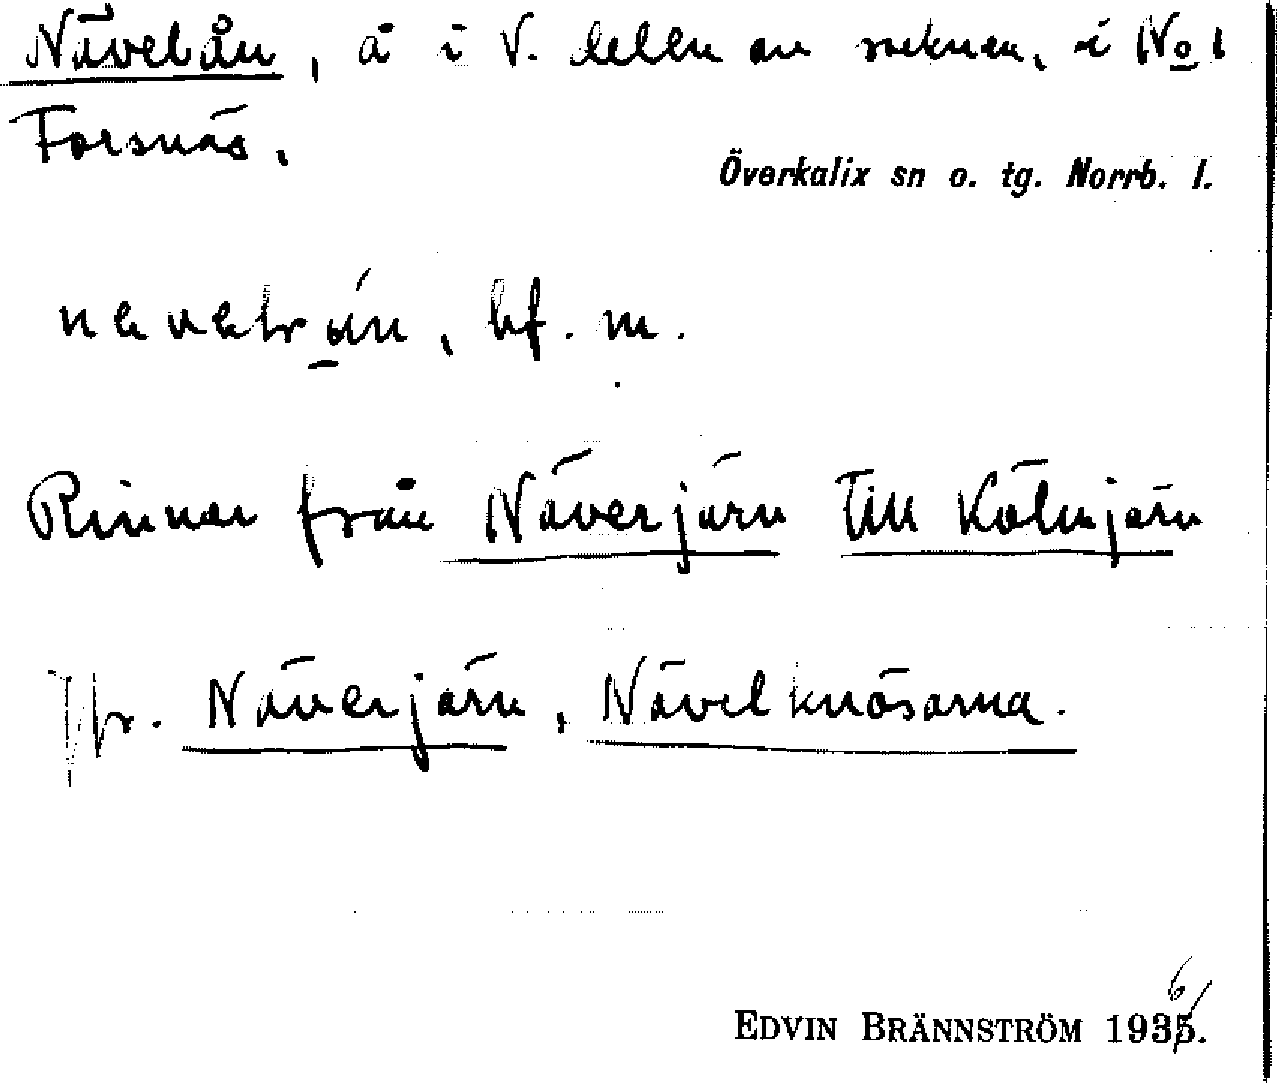 Nävelån, å i V. delen av socknen, i No 1
Forsnäs.
Överkalix sn o. tg. Norrb. l.
bf. m.
Rinner från Näverjärn till Kölmjärn
Jfr. Näverjärn, Nävelknösarna.
EDVIN BRÄNNSTRÖM 1936.